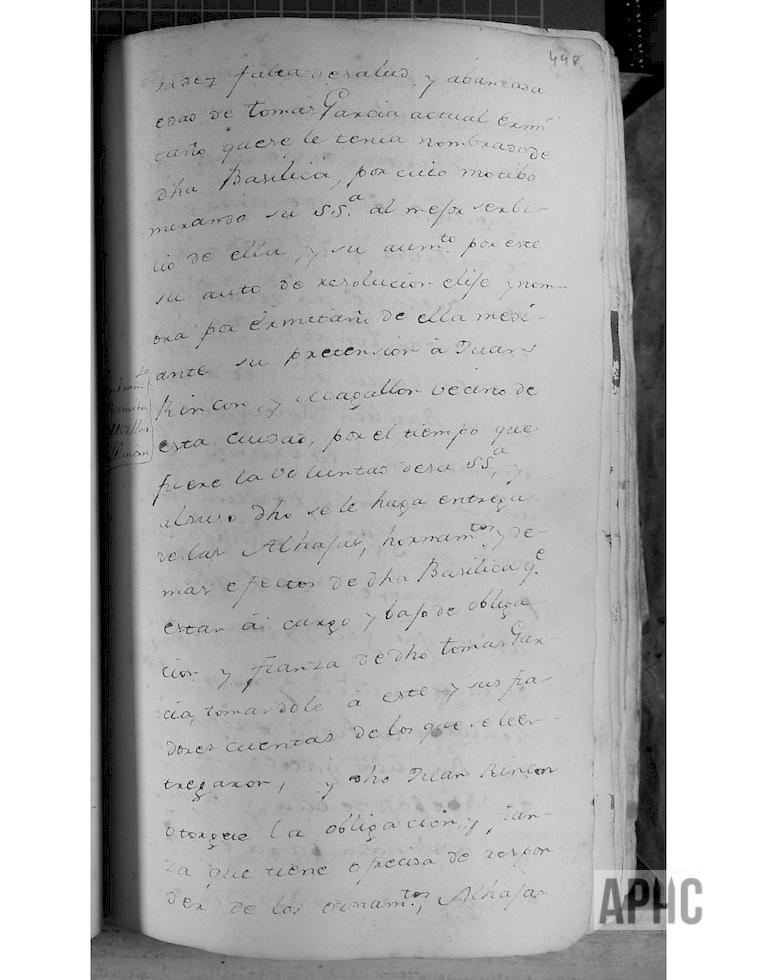 448
falta de salud, y abanzada
edad de tomas Garcia actual Ermi
taño que se le tenia nombrado de
dha Basilica, por cuio motibo
mirando su SS.ª al mejor serbi-
cio de ella, y su aum.to por este
su auto de resolucion elije y nom-
bra por Ermitaño de ella medi-
ante su pretension à Juan
Rincon y Magallon vecino de
esta ciudad, por el tiempo que
fuere la voluntad de su SS.ª y
dho se le haga entrega
de las Alhajas, hornam.tos y de-
mas efectos de dha Basilica q.e
estan á cargo y bajo de obliga-
cion y fianza de dho tomas Gar-
cia, tomandole á este y sus fia-
dores cuentas de los que se le en-
tregaron, y dho Juan Rincon
otorgue la obligacion y fian-
za que tiene ofrecida de respon-
der de los ornam.tos, Alhajas
Rincon
APHC